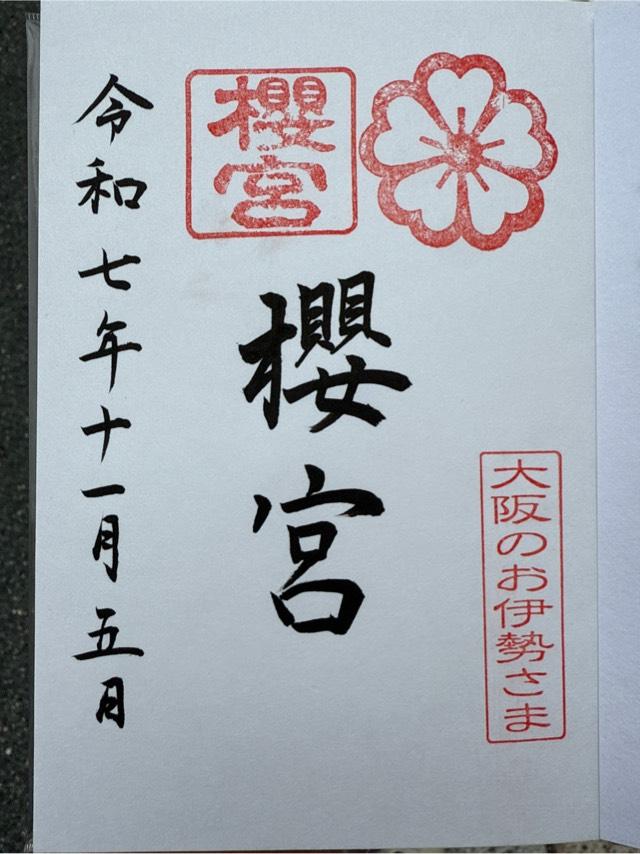 大阪のお伊勢さま
櫻宮
櫻宮
令和七年十一月五日